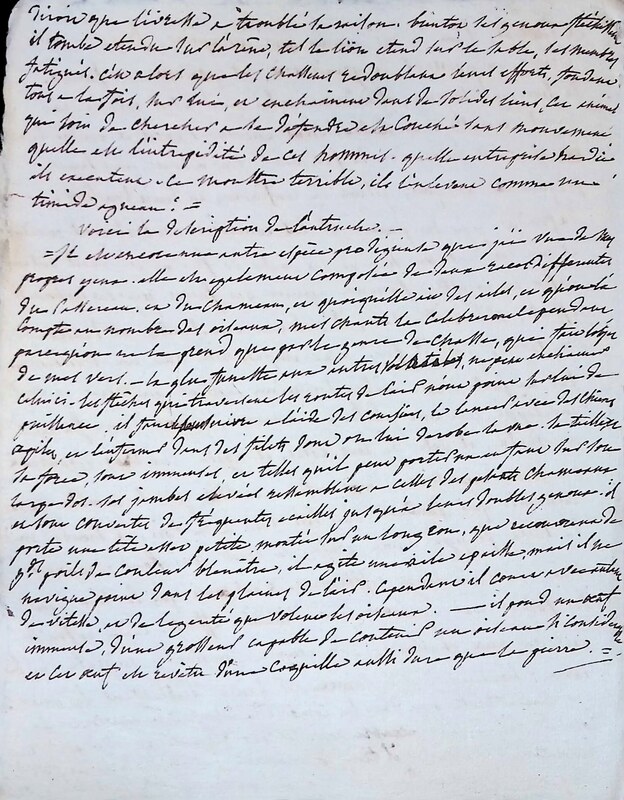 diroit que l'ivresse a troublé sa raison. bientot ses genoux fléchissent
il tombe etendu sur l'arène, tel le lion etend sur le sable, ses membres
fatigués. c'est alors que les chasseurs redoublant leurs efforts, fondent
tous a la fois, sur lui, et enchainent dans de solides liens, cet ennemi
que loin de chercher a se défendre est couché sans mouvement
quelle est l'intrepidité de ces hommes. quelle entreprise hardie
ils executent. ce monstre terrible, ils l'enlevent comme un
timide agneau! =
voici la description de l'autruche. -
= Il est encore une autre espèce prodigieuse que j'ai vue de mes
propres yeux. elle est egalement composée de deux races differentes
du passereau et du chameau, et quoiqu'elle ait des ailes, et qu'on la
compte au nombre des oiseaux, mes chants la celebreront cependant
parceq'on ne la prend que par le genre de chasse, qui fait l'objet
de mes vers. - la glu funeste aux autres volatiles, ne peut enchainer
celui-ci. les fleches qui traversent les routes de l'air n'ont point sur lui de
puissance. il faut poursuivre a l'aide des coursiers, le lancer avec des chiens
agiles, et l'enfermer dans des filets dont on lui derobe la vue. sa taille et
sa force, sont immenses, et telles qu'il peut porter un enfant sur son
large dos. ses jambes elevées ressemblent a celles des pesants chameaux
et sont couvertes de fréquentes ecailles jusqu'à leurs doubles genoux. il
porte une tête assez petite, montée sur un long cou, que recouvrent de
gds poils de couleur bleuatre, il agite une aile epaisse mais il ne
navigue point dans les plaines de l'air. cependant il court avec autant
de vitesse, et de legereté que volent les oiseaux. — il pond un œuf
immense, d'une grosseur capable de contenir un oiseau si considerable
et cet œuf est revêtu d'une coquille aussi dure que la pierre. =